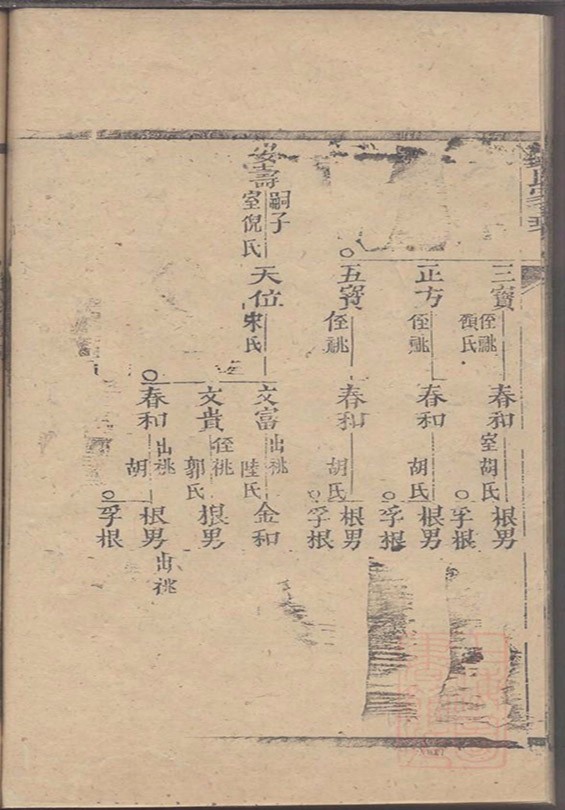 三寶 侄祧 顏氏
春和 室胡氏
根男
孚根
正方 侄祧
春和 胡氏
根男
孚根
五寶 侄祧
春和 胡氏
根男
孚根
壽 嗣子 室倪氏
天位 宋氏
文富 出祧 陸氏
金和
文貴 侄祧 郭氏
根男
春和 出祧 胡
根男 出祧
孚根